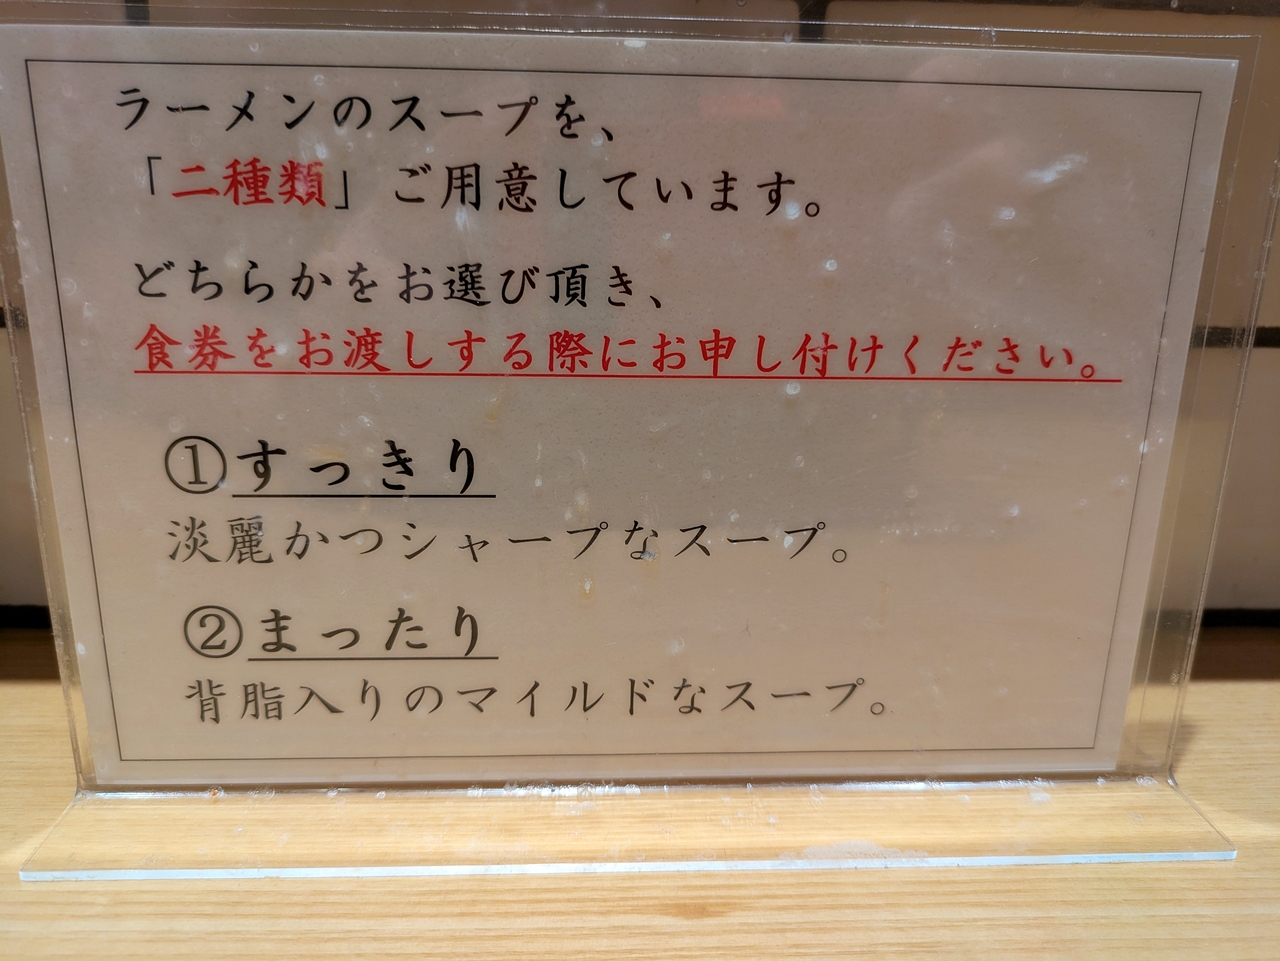 ラーメンのスープを、
「二種類」ご用意しています。
どちらかをお選び頂き、
食券をお渡しする際にお申し付けください。
①すっきり
淡麗かつシャープなスープ。
②まったり
背脂入りのマイルドなスープ。